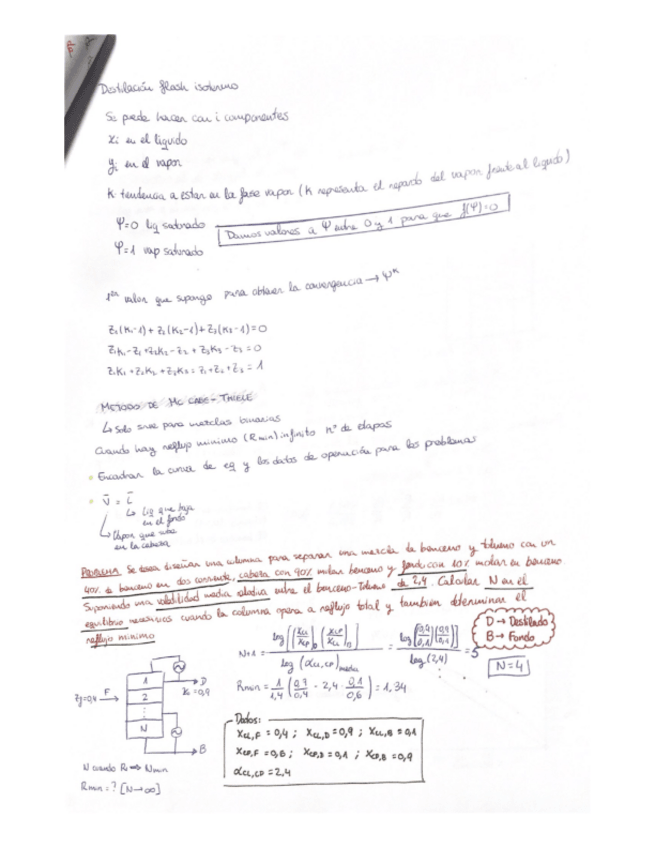 Destilación flash isotermo
Se puede hacer con i componentes
xi en el líquido
yi en el vapor
K tendencia a estar en la fase vapor (K representa el reparto del vapor frente al líquido)
Ψ=0 liq saturado
Damos valores a Ψ entre 0 y 1 para que f(Ψ)=0
Ψ=1 vap saturado
1er valor que supongo para obtener la convergencia → Ψ^k
z1(K1-1) + z2(K2-1) + z3(K3-1) = 0
z1K1 - z1 + z2K2 - z2 + z3K3 - z3 = 0
z1K1 + z2K2 + z3K3 = z1+z2+z3 = 1
METODO DE MC CABE-THIELE
↳ Solo sirve para mezclas binarias
Cuando hay reflujo mínimo (Rmin) infinito nº de etapas
• Encontrar la curva de eq y los datos de operación para los problemas
• V̄ = L̄
↳ Liq que baja
en el fondo
↳ Vapor que sube
en la cabeza
PROBLEMA Se desea diseñar una columna para separar una mezcla de benceno y tolueno con un
40% de benceno en dos corrientes, cabeza con 90% molar benceno y fondo con 10% molar en benceno
Suponiendo una volatilidad media relativa entre el benceno-tolueno de 2,4. Calcular N en el
equilibrio necesarias cuando la columna opera a reflujo total y también determinar el
reflujo mínimo
D → Destilado
B → Fondo
N+1 = log[(xCL/xCP)D (xCP/xCL)B] / log (αCL,CP)media = log[(0,9/0,1)(0,9/0,1)] / log(2,4) = 5
N=4
Rmin = 1/1,4 (0,9/0,4 - 2,4 · 0,1/0,6) = 1,34
zF=0,4 F
1
2
N
D
xD = 0,9
B
Datos:
xCL,F = 0,4 ; xCL,D = 0,9 ; xCL,B = 0,1
xCP,F = 0,6 ; xCP,D = 0,1 ; xCP,B = 0,9
αCL,CP = 2,4
N cuando R → Nmin
Rmin = ? [N→∞]